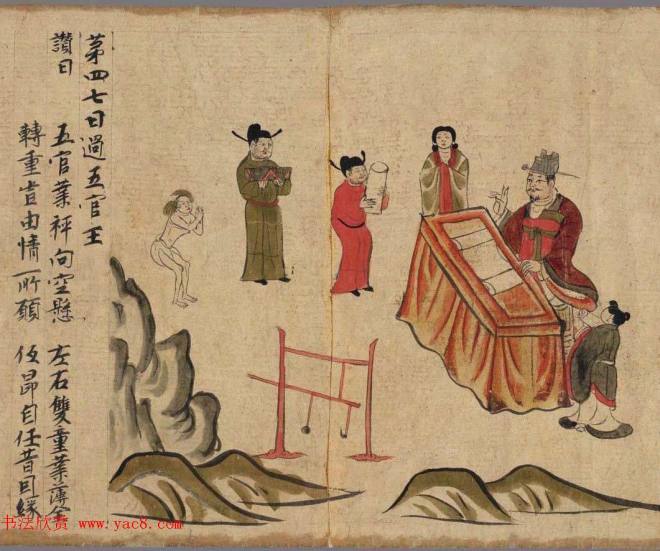 苐四七日過五官王
讚曰　五官業秤向空懸　左右雙童業薄全
轉重豈由情所願　伍昂自任昔因緣
书法欣赏 www.yac8.com